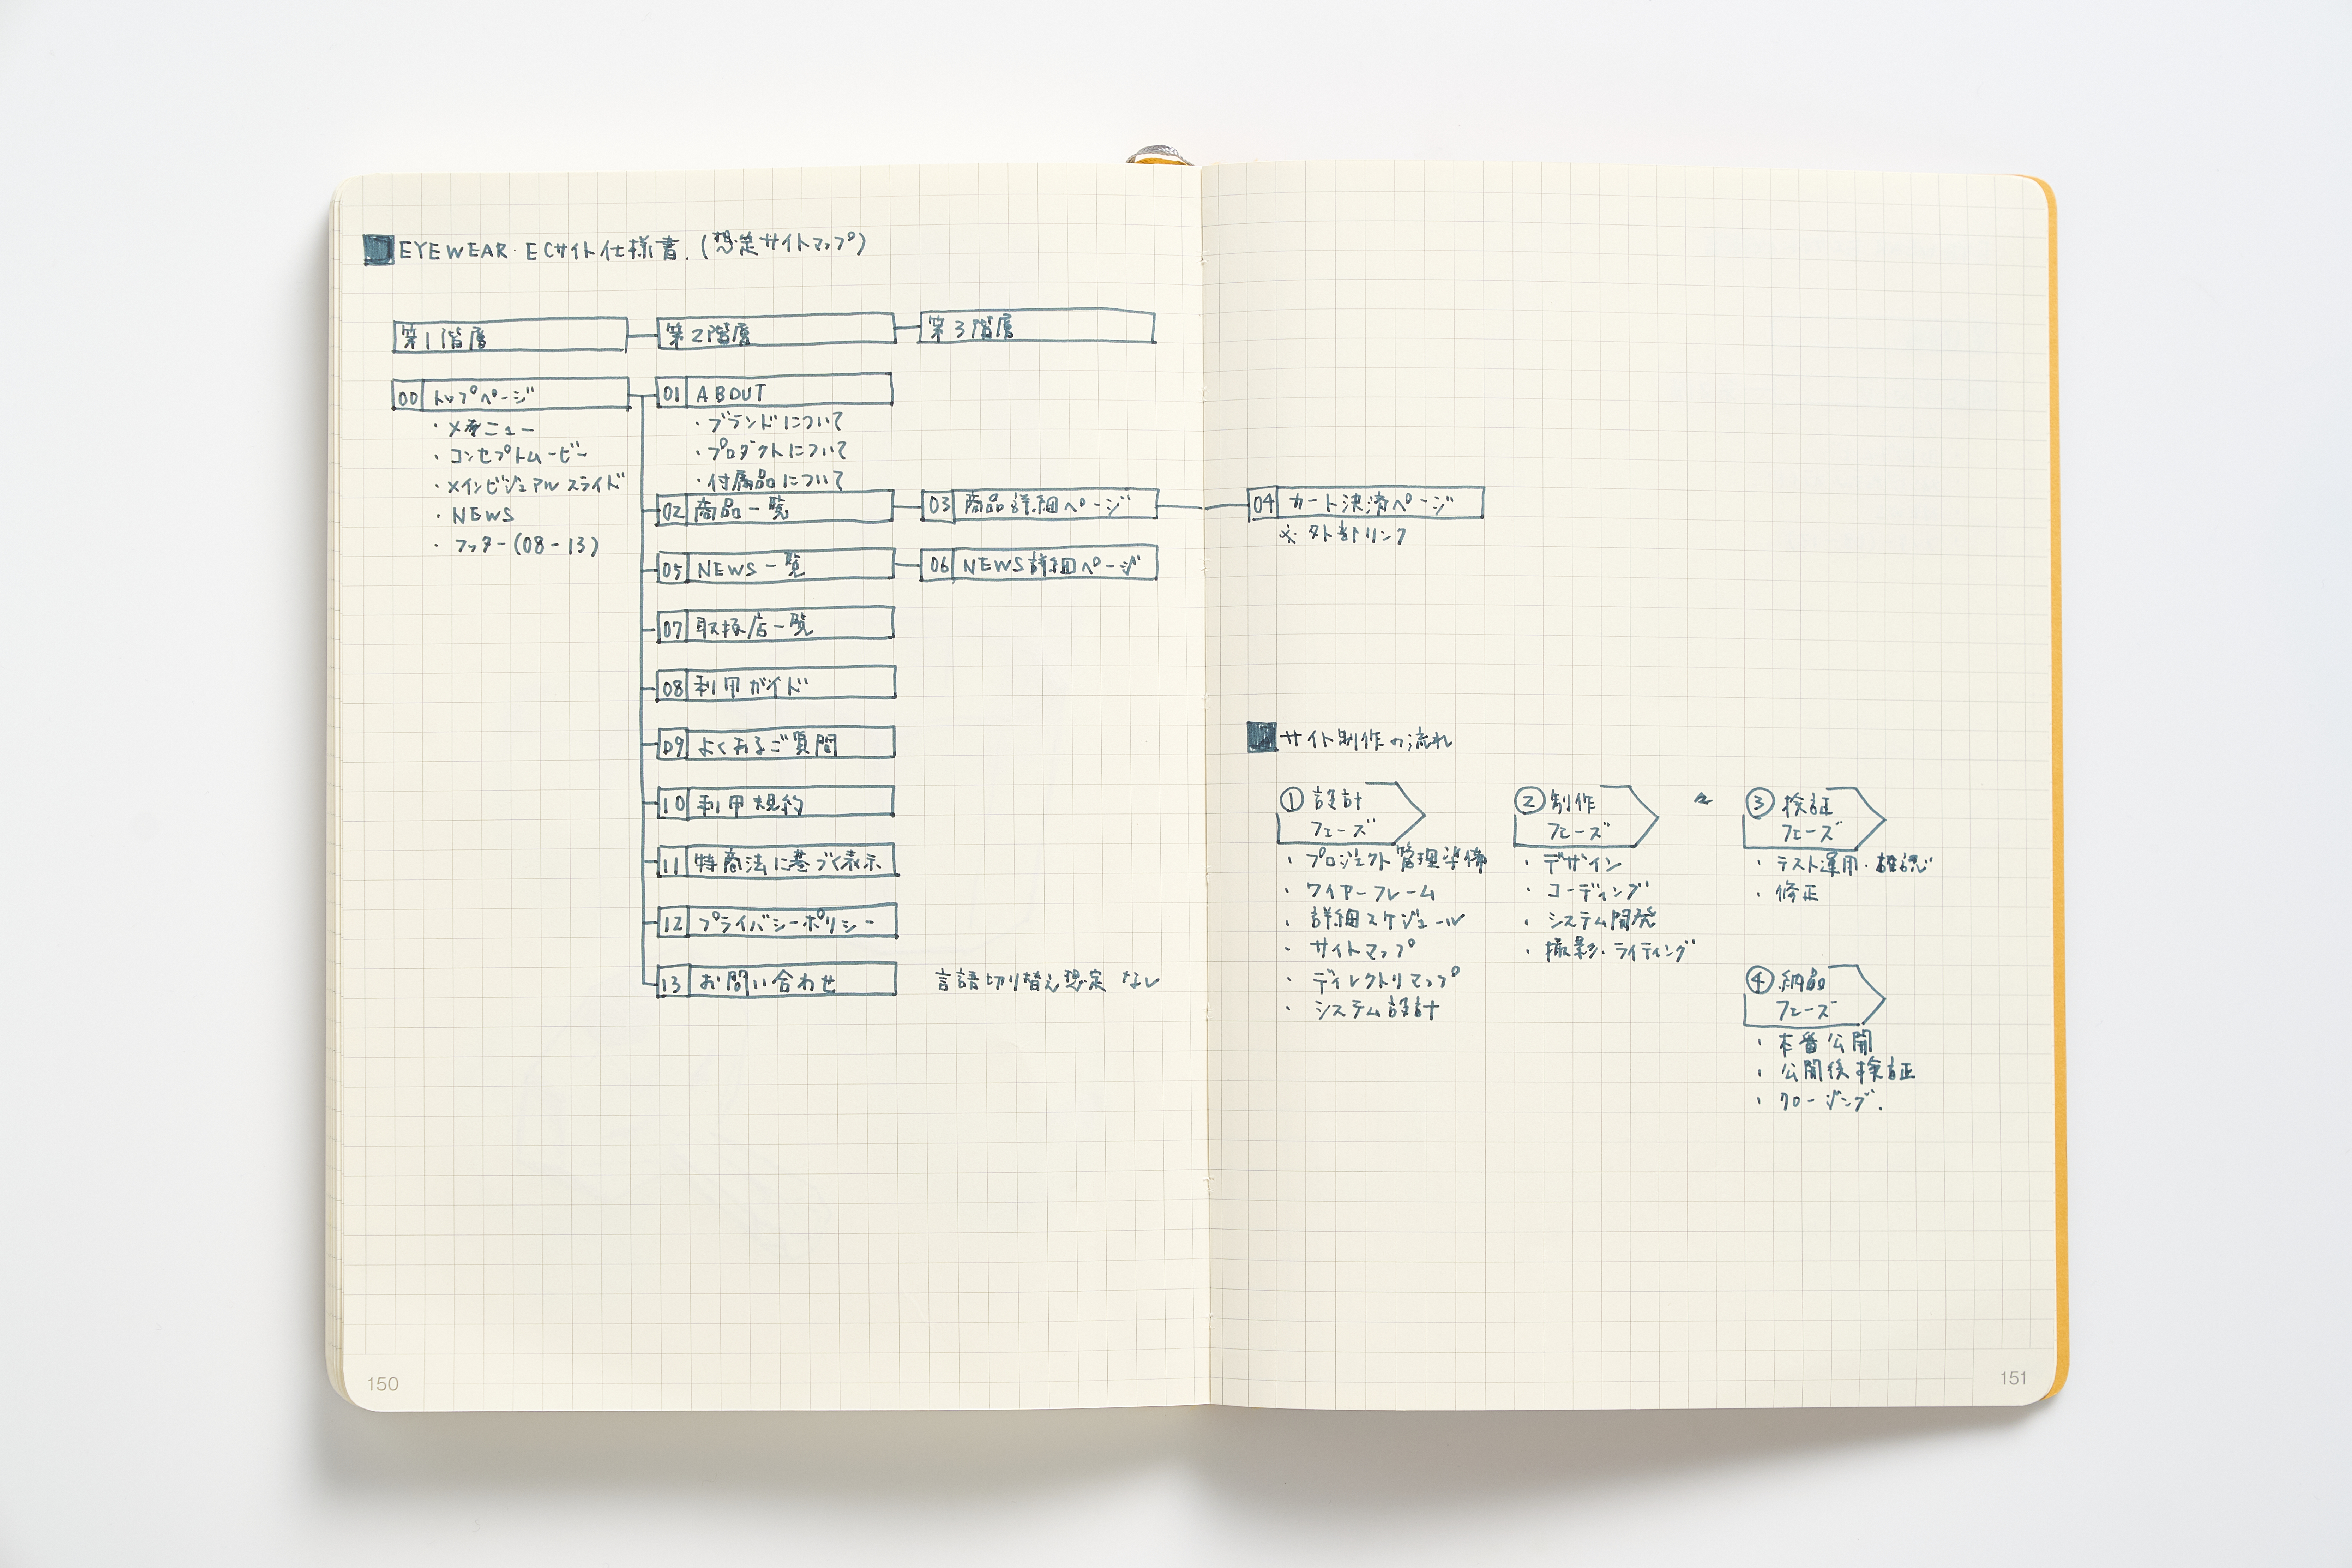 EYEWEAR・ECサイト仕様書.(想定サイトマップ)
第1階層
第2階層
第3階層
00 トップページ
・メニュー
・コンセプトムービー
・メインビジュアルスライド
・NEWS
・フッター(08-13)
01 ABOUT
・ブランドについて
・プロダクトについて
・付属品について
02 商品一覧
03 商品詳細ページ
04 カート決済ページ
※外部リンク
05 NEWS一覧
06 NEWS詳細ページ
07 取扱店一覧
08 利用ガイド
09 よくあるご質問
10 利用規約
11 特商法に基づく表示
12 プライバシーポリシー
13 お問い合わせ
言語切り替え想定なし
150
サイト制作の流れ
①設計
フェーズ
・プロジェクト管理準備
・ワイヤーフレーム
・詳細スケジュール
・サイトマップ
・ディレクトリマップ
・システム設計
②制作
フェーズ
・デザイン
・コーディング
・システム開発
・撮影・ライティング
③検証
フェーズ
・テスト運用・確認
・修正
④納品
フェーズ
・本番公開
・公開後検証
・クロージング.
151